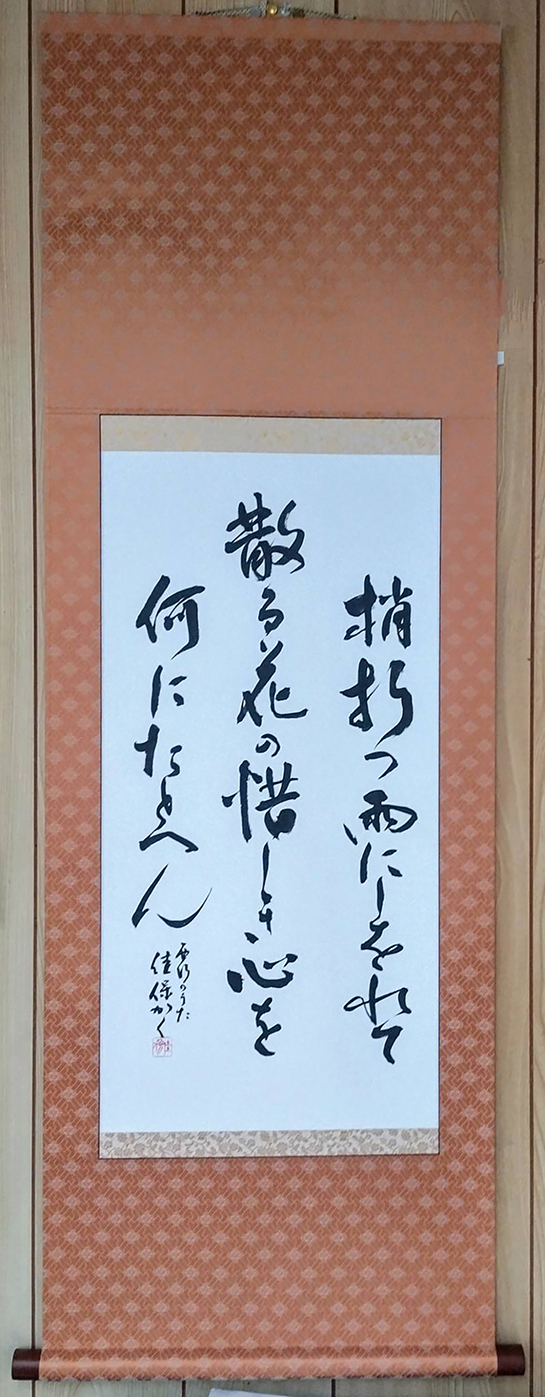 梢打つ雨にしをれて
散る花の惜しき心を
何にたとへん
西行のうた
佳保かく